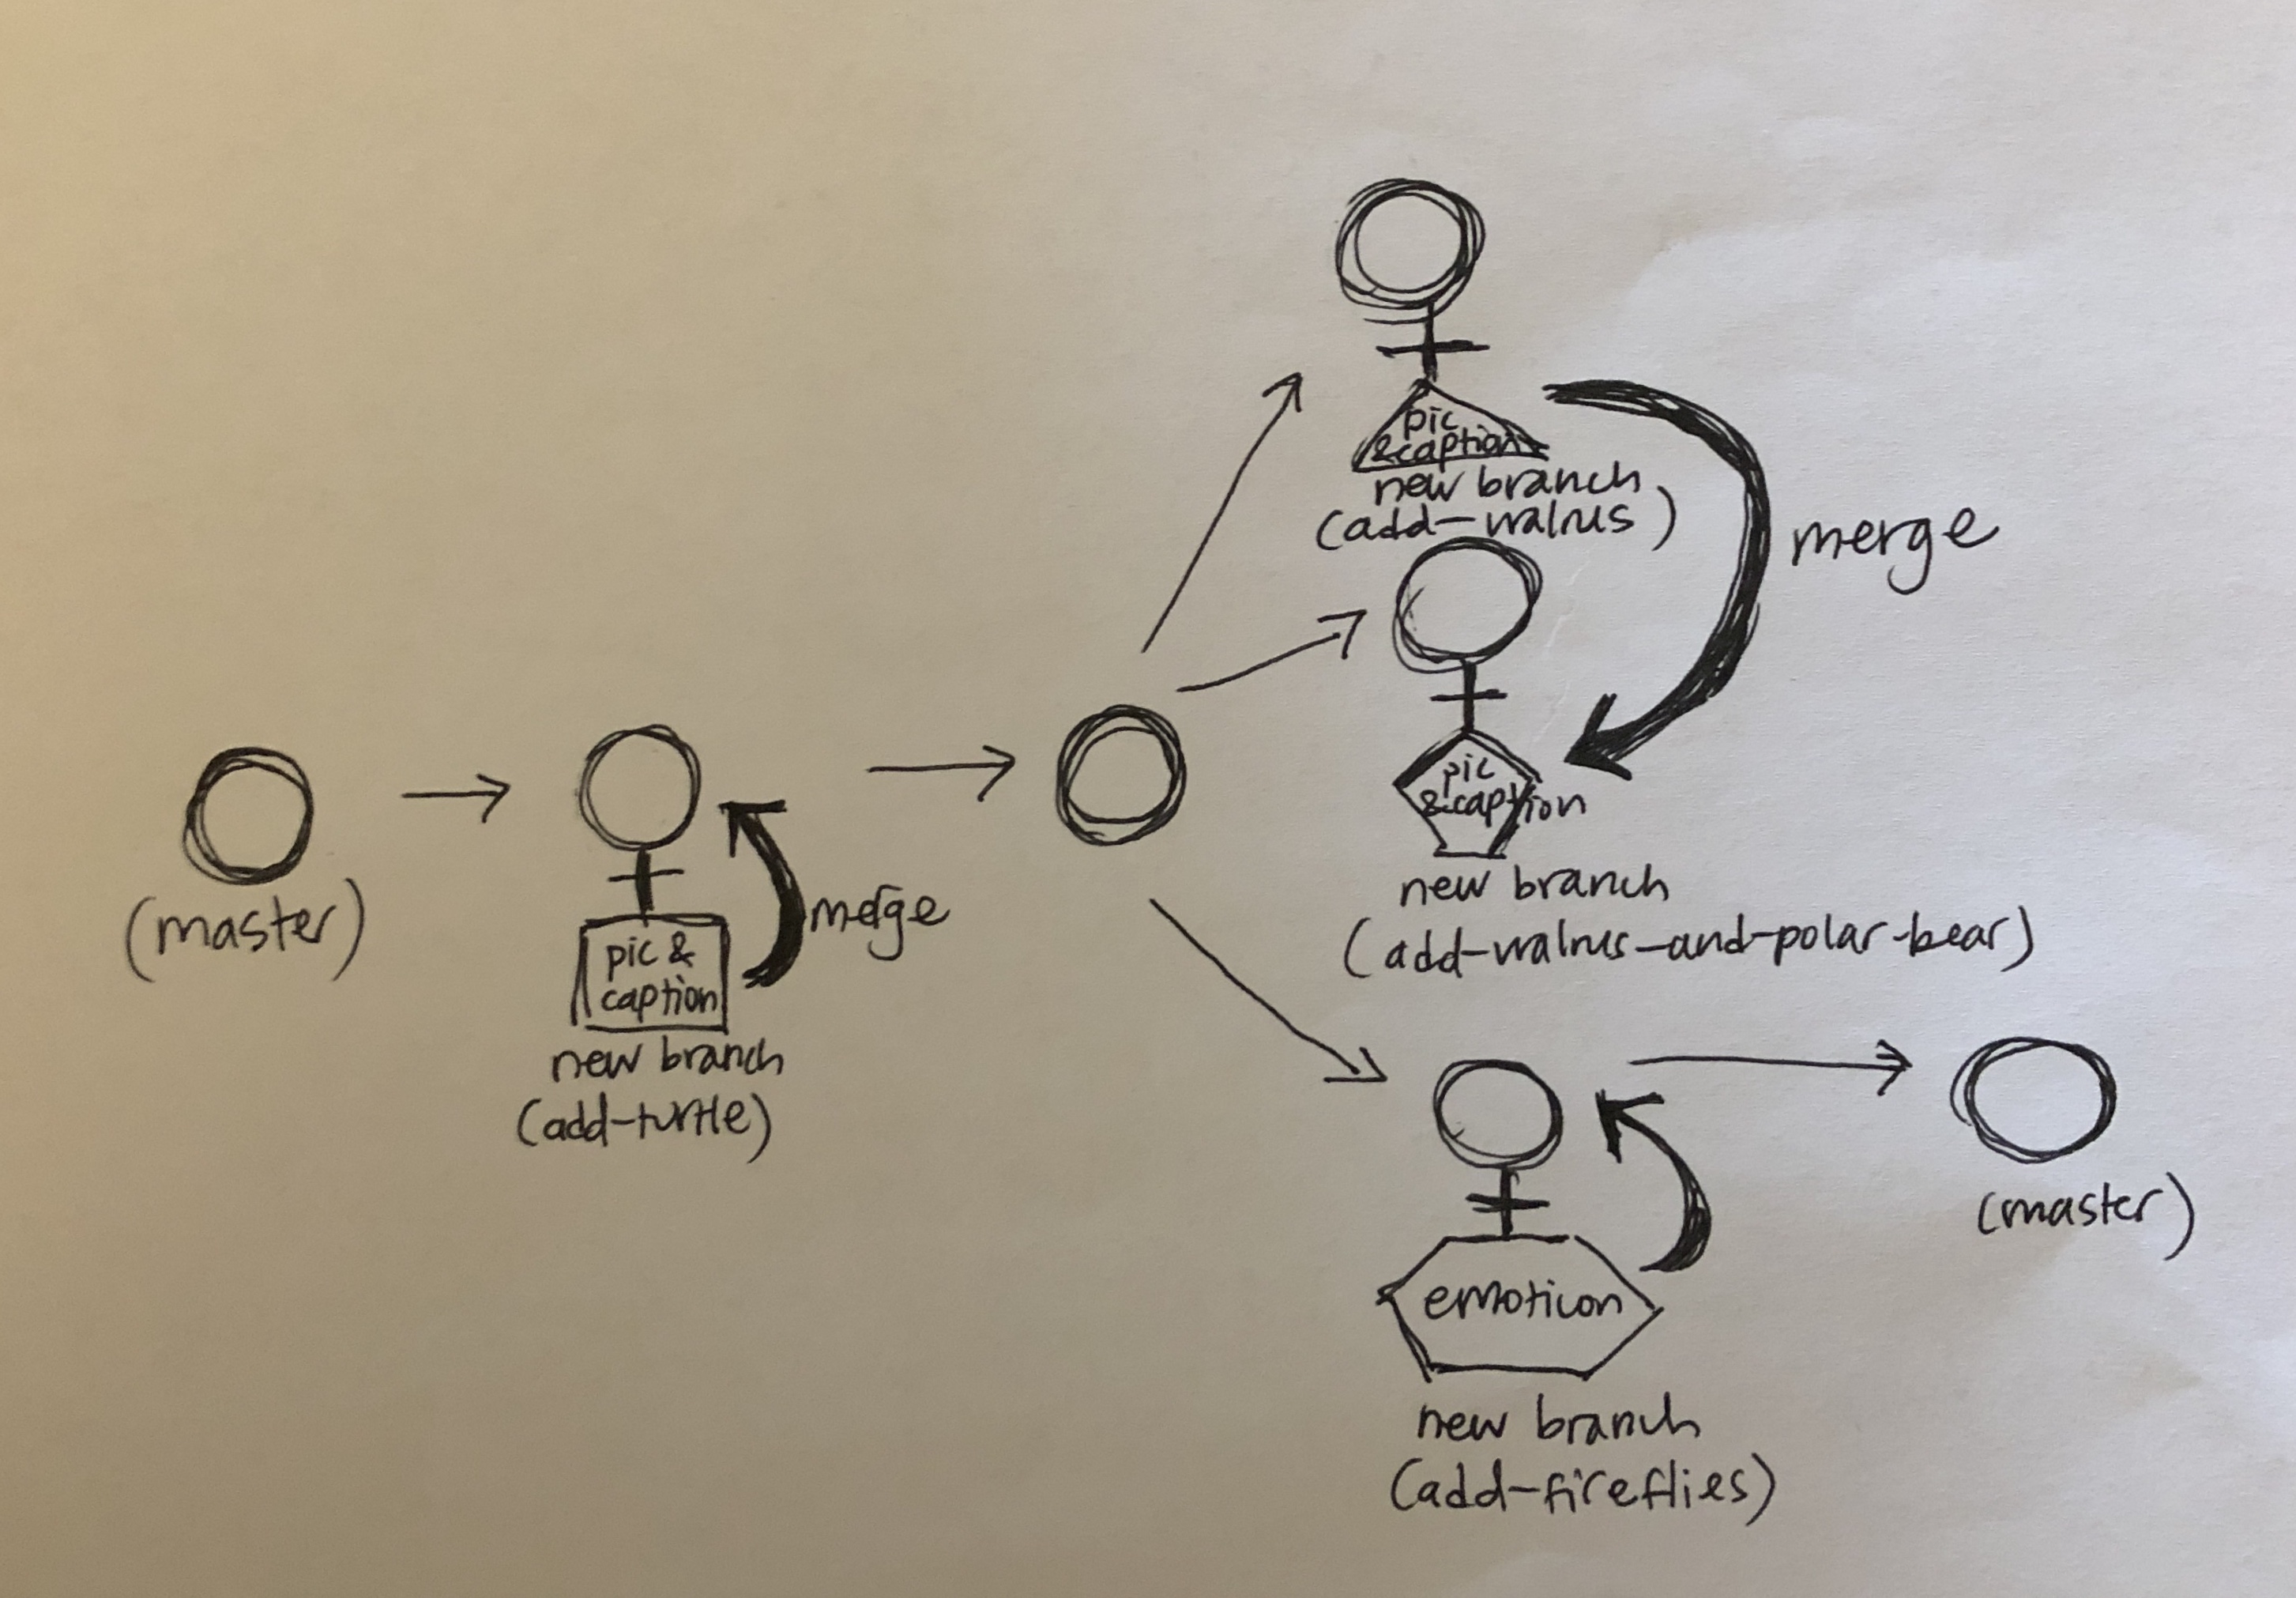 (master)
pic &
caption
new branch
(add-turtle)
merge
pic
&caption
new branch
(add-walrus)
merge
pic
&caption
new branch
(add-walrus-and-polar-bear)
emoticon
new branch
(add-fireflies)
(master)